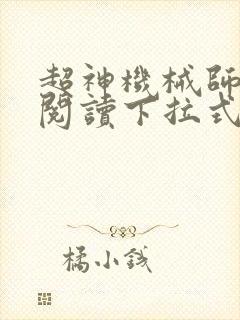 超神機械師
閱讀下拉式
橘小錢